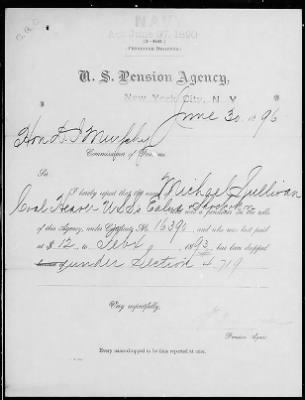 NAVY
Act June 27, 1890
U. S. Pension Agency,
New York City, N. Y.
June 30 1896
Hon D. I. Murphy
Commissioner of Pensions
Sir
I hereby report that the name of Michael Sullivan
Coal Heaver U.S.S.
was a pensioner on the rolls
of this Agency, under Certificate No. 16390 and who was last paid
at $12 to Feby 9 1893 has been dropped
under Section 4719
Very respectfully,
Pension Agent.
Every name dropped to be thus reported at once.